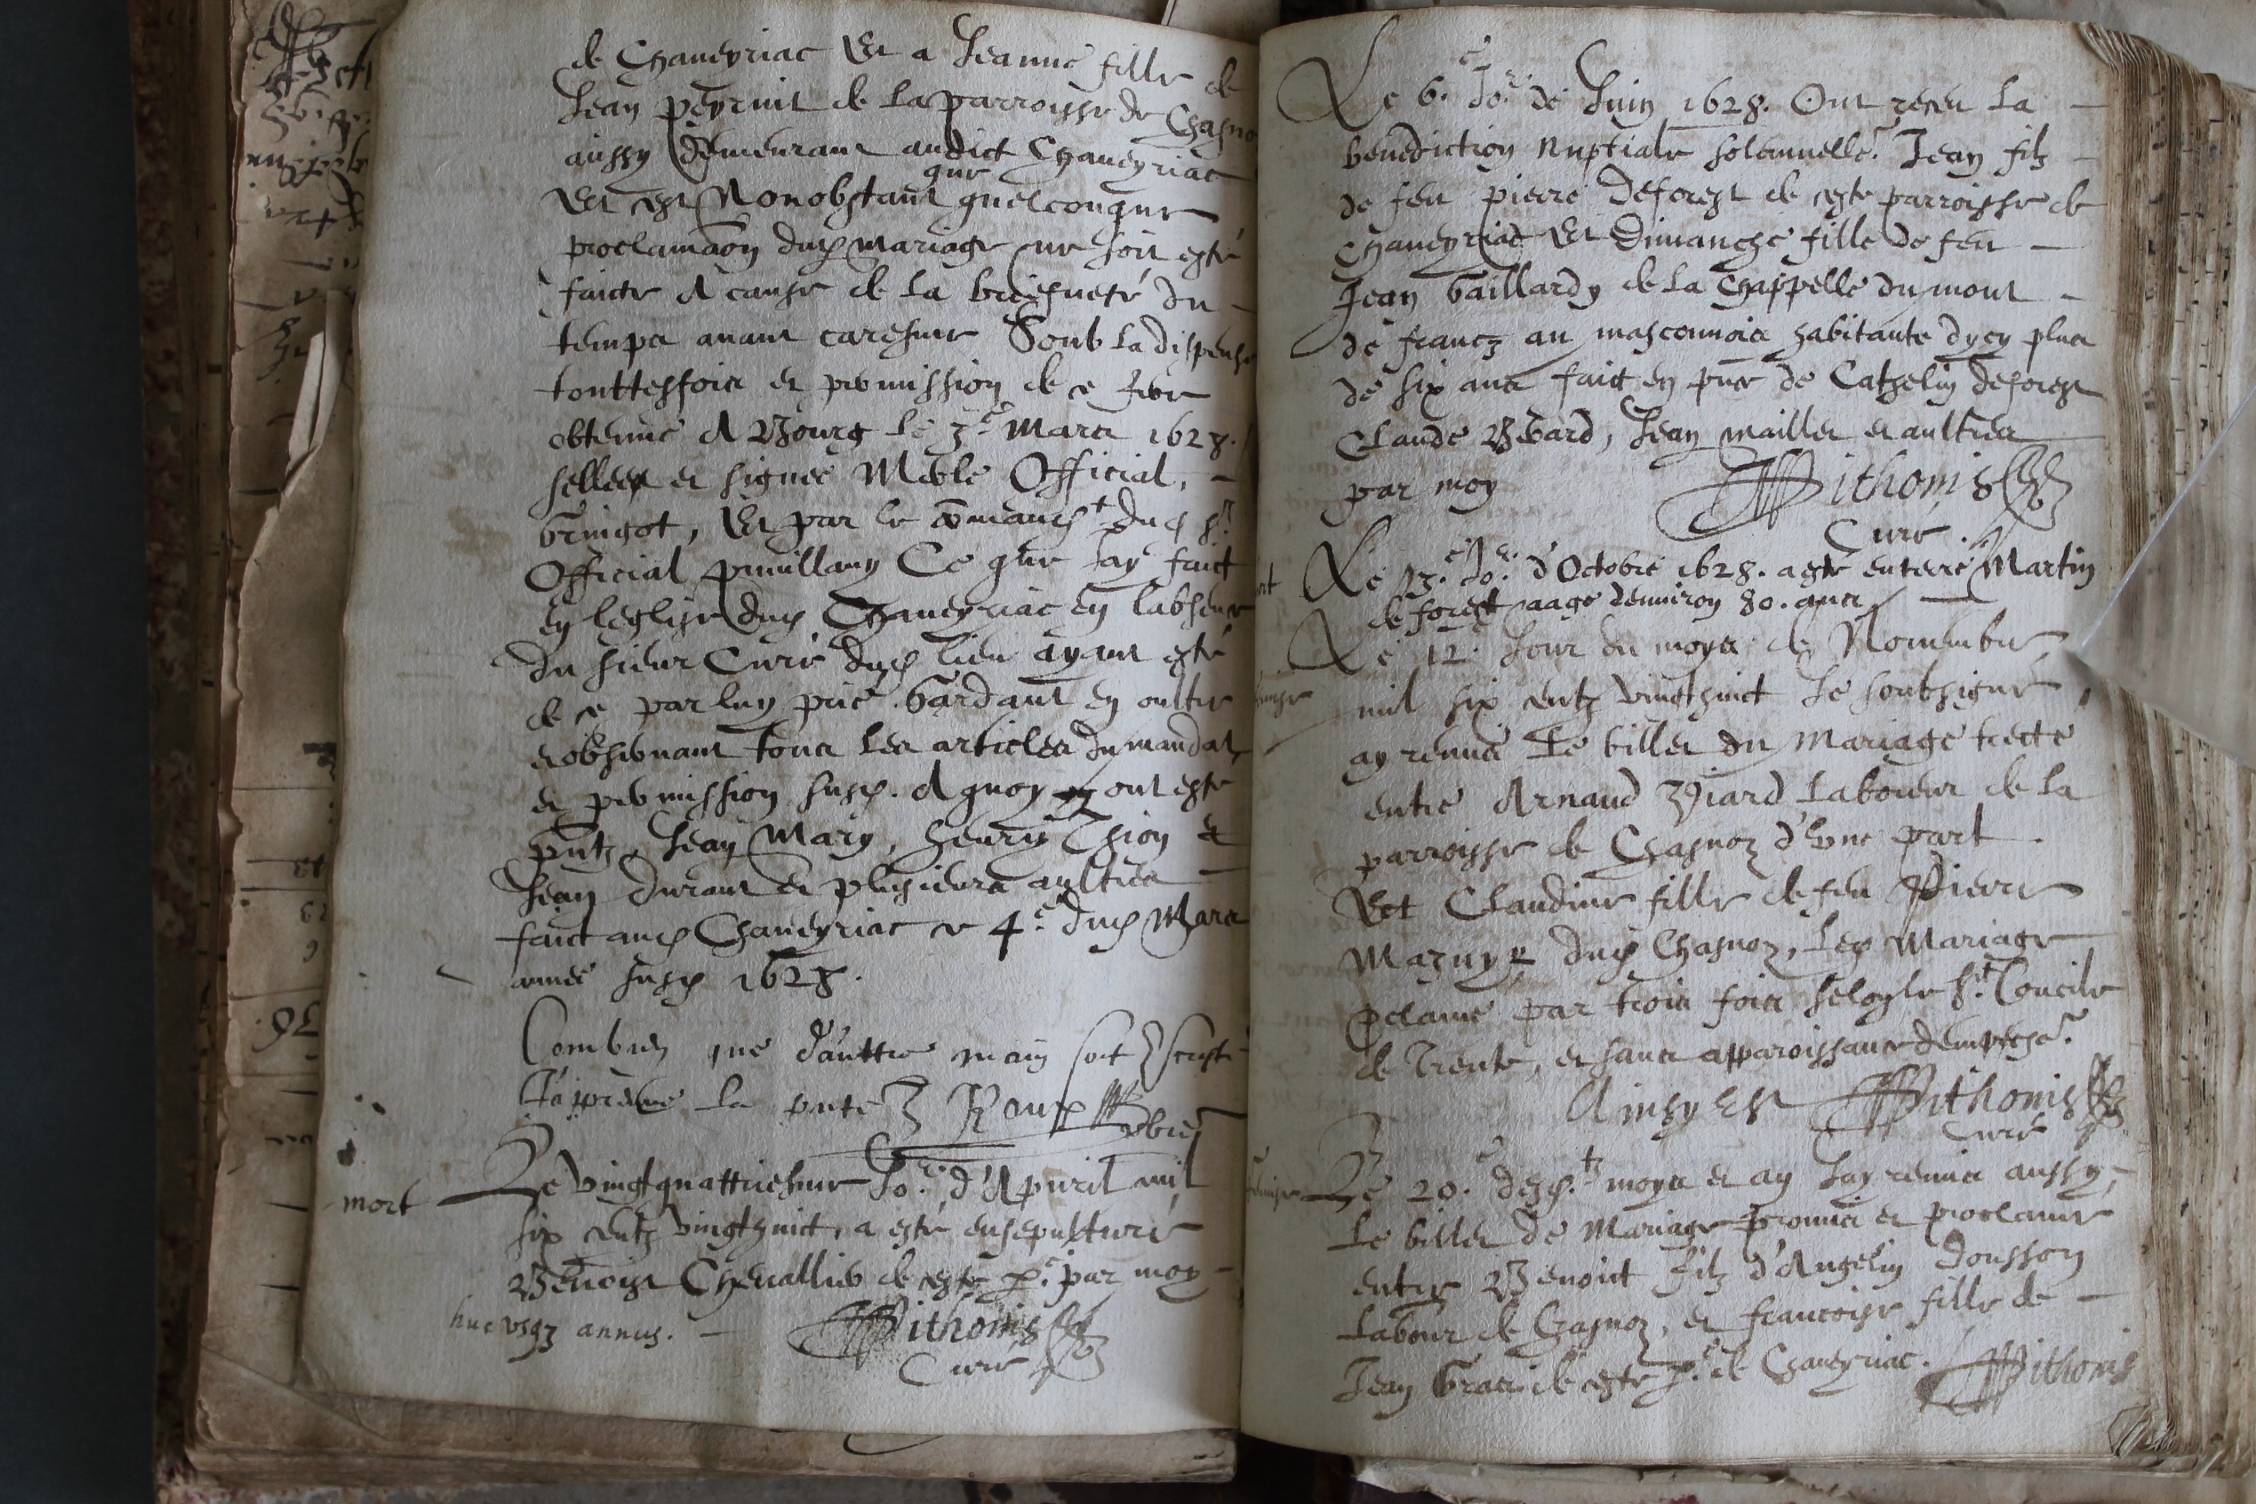 de Chaveyriac Et a Jeanne fille de
Jean peyruit de La parroisse de Chasno
aussy demeurant audict Chaveyriac
Et est Nonobstant que quelconque
proclamaon dud mariage ne soit esté
faicte A cause de la briefueté du
temps avant caresme Soub La dispense
touttesfois et permission de ce fere
obtenue A Bourg le 3e Mars 1628.
sellee et signee Meble Official, -
Gringot, Et par le commandt dud sr
Official Ce que Jay faict
en leglise dud Chaveyriac en labsence
du sieur Curé dud lieu ayant esté
de ce par luy prié Gardant en oultre
et observant tous les articles du mandat
et permission susd. A quoy ont esté
pntz Jean Mary, henry Thion et
Jean durant et plusieurs aultres
faict aud Chaveyriac ce 4e dud Mars
annee susd 1628.
Combien que d'auttre main soit escript
J'appreuve la pnte Roux
mort
Le vingtquattriesme Jo.r d'Apvril mil
six centz vingthuict, a esté ensepulturé
Benoist Chevallier de ceste pe. par moy -
huc usq3 annus. - Pithonis
Curé
Le 6.e Jo.r de Juin 1628. Ont receu La -
benediction nuptiale solemnelle. Jean filz -
de feu pierre Deforest de ceste parroisse de
Chaveyriac Et Dimanche fille de feu -
Jean Gaillardy de La Chappelle du mont -
de francz au masconnois habitante dycy plus
de six ans faict en pnce de Cathelin deforest
Claude Bérard, Jean maillet et aultres
par moy Pithonis
Curé.
Le 13.e Jo.r d'Octobre 1628. a este enterré Martin
de forest aagé denviron 80. ans
Le 12e Jour du moys de Novembre
mil six centz vingthuict Je soubsigné
ay remis Le billet du Mariage trecté
entre Arnaud Viard Laboreur de la
parroisse de Chasnoz d'Une part
Et Claudine fille de feu Pierre
Mazuyr dud Chasnoz, Led Mariage
pclamé par trois fois selon le St Concile
de Trente, et sans apparoissance dempeschet.
Ainsy Est Pithonis
Curé
Le 20.e desd.t moys et an Jay remis aussy,
Le billet de Mariage promis et proclamé
entre Benoict filz d'Angelin Dousson
Labour de Chasnoz, et francoise fille de -
Jean Gras de ceste pe. de Chaveyriac. Pithonis